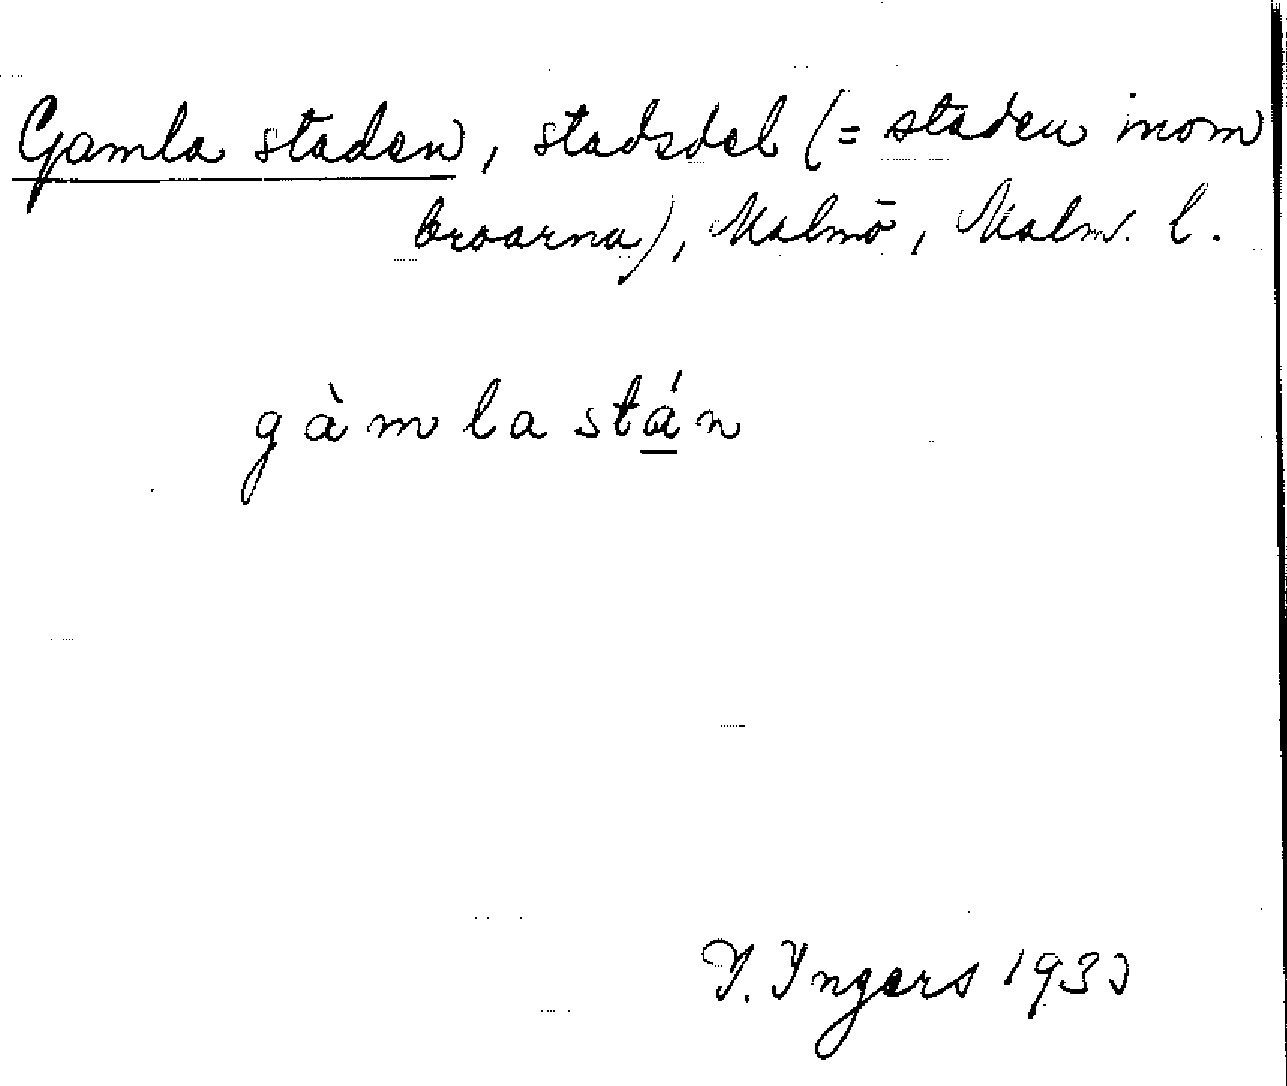 Gamla staden, stadsdel (= staden inom
broarna), Malmö, Malm. l.
gàmla stán
I. Ingers 1933